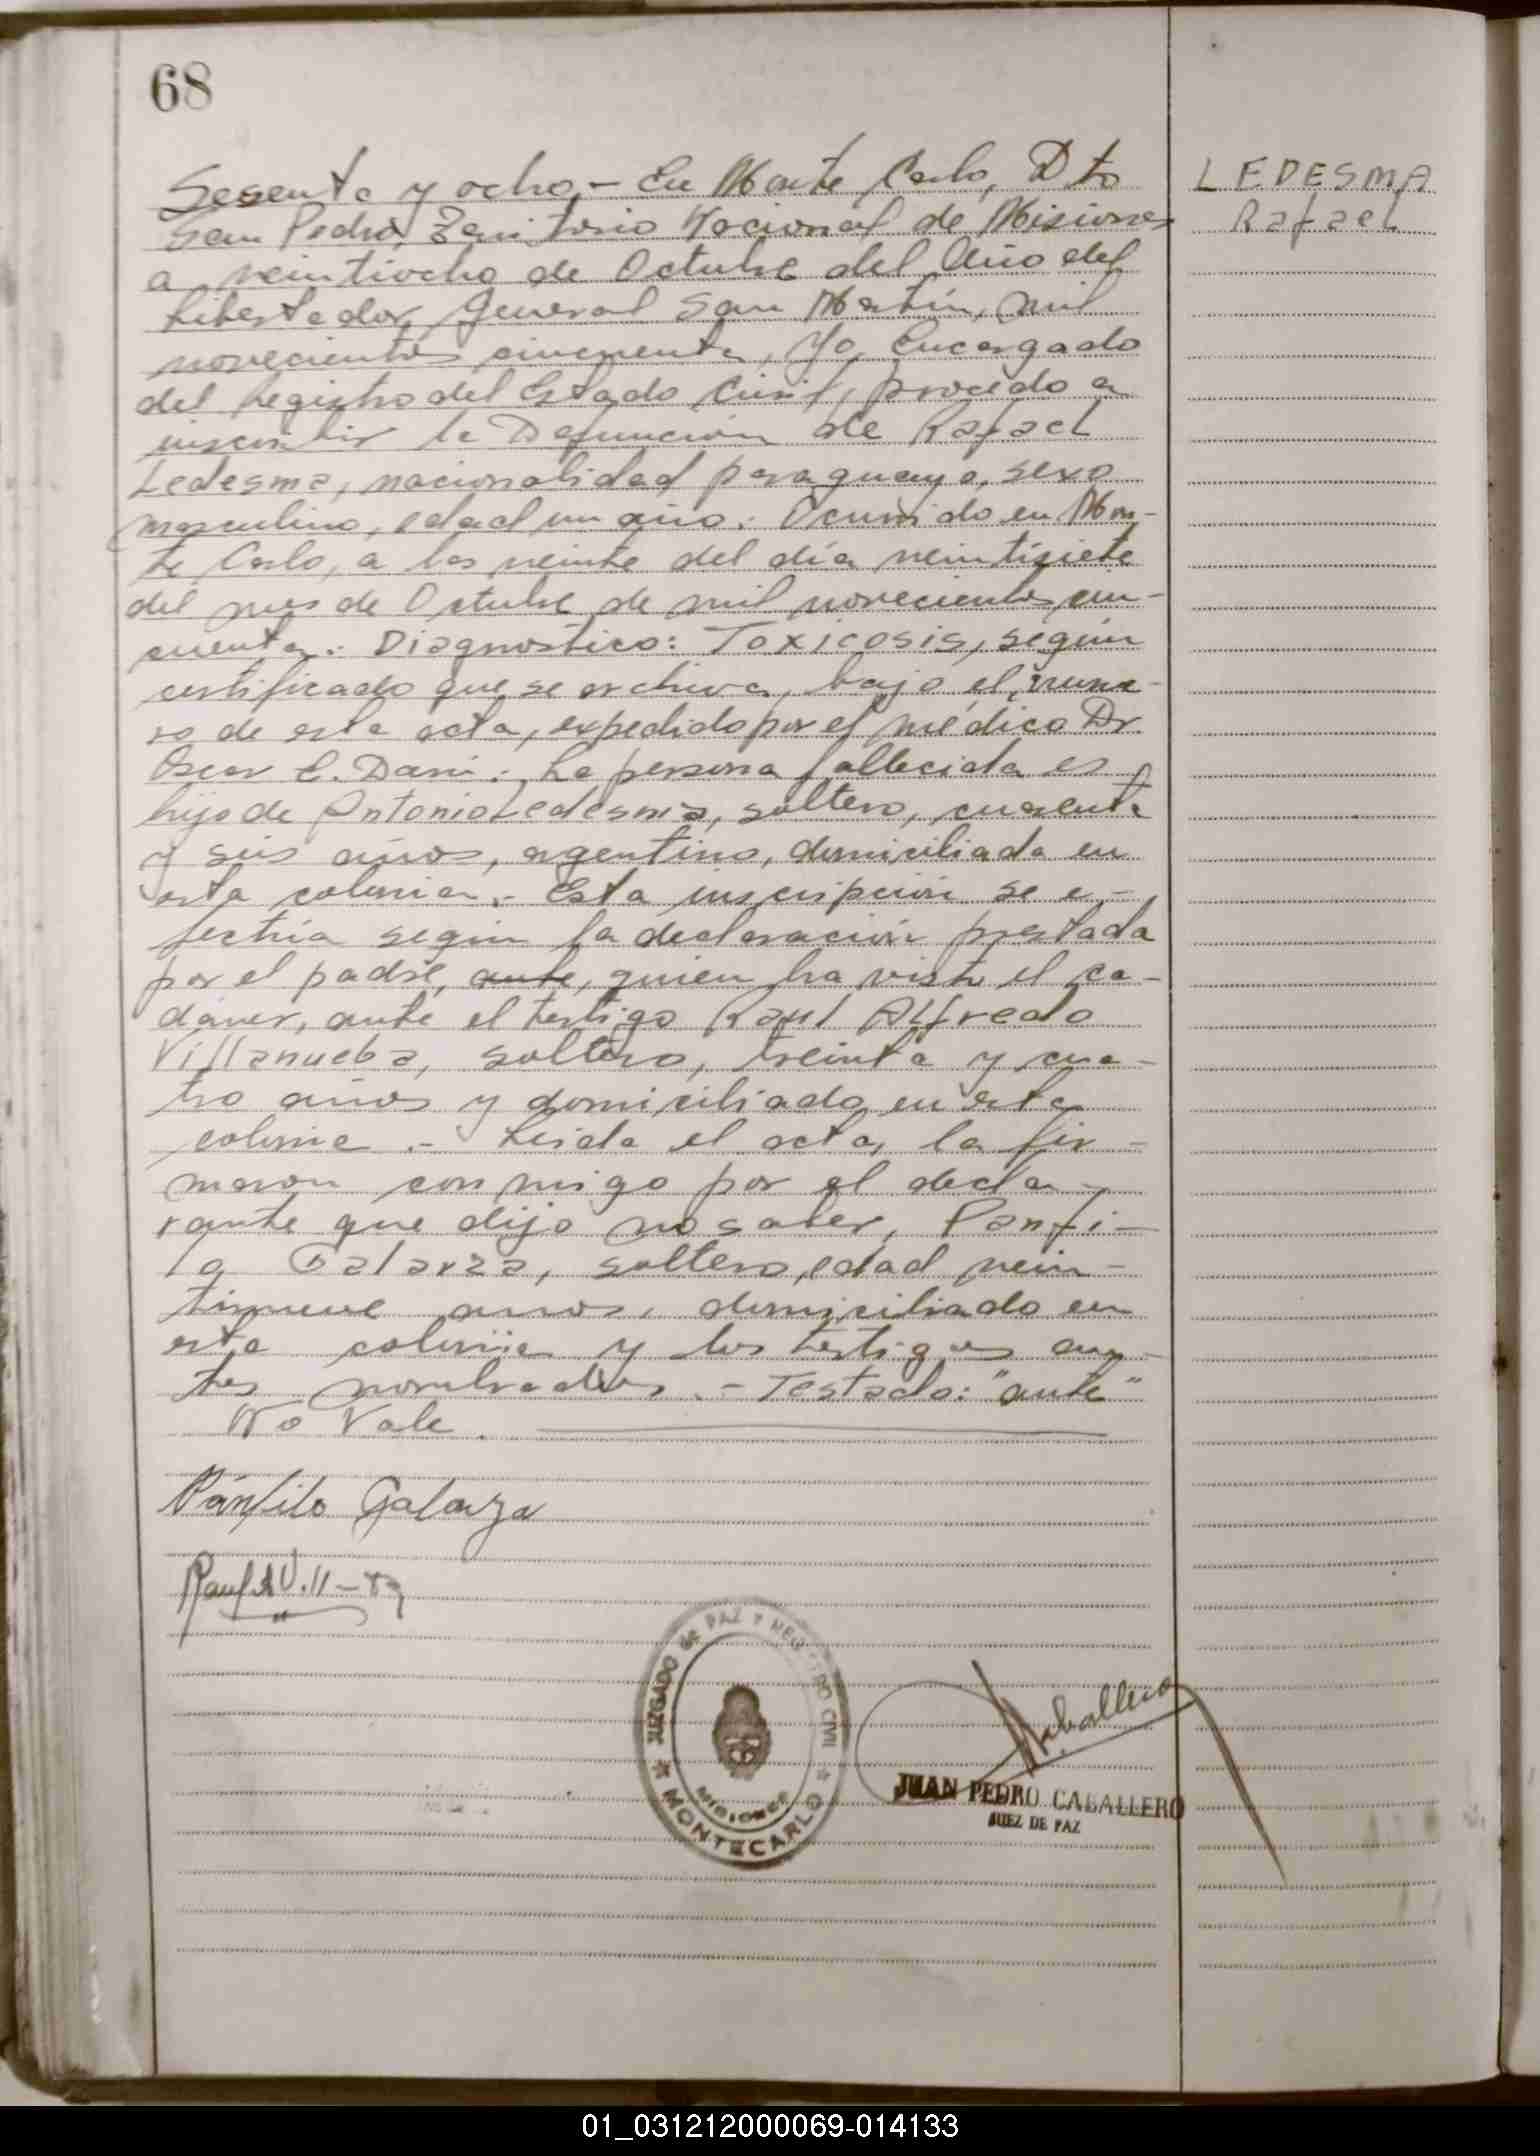 68
Sesenta y ocho.- En Monte Carlo, Dto
San Pedro, Territorio Nacional de Misiones
a veintiocho de Octubre del Año del
Libertador General San Martín, mil
novecientos cincuenta, Yo, Encargado
del Registro del Estado Civil, procedo a
inscribir la Defunción de Rafael
Ledesma, nacionalidad paraguaya, sexo
masculino, edad un año. Ocurrido en Mon-
te Carlo, a las veinte del día veintisiete
del mes de Octubre de mil novecientos cin-
cuenta. Diagnostico: Toxicosis, según
certificado que se archiva, bajo el núme-
ro de esta acta, expedido por el médico Dr.
Oscar E. Darú. La persona fallecida es
hijo de Antonio Ledesma, soltero, cuarenta
y seis años, argentino, domiciliada en
esta colonia.- Esta inscripción se e-
fectúa según la declaración prestada
por el padre, ante, quien ha visto el ca-
dáver, ante el testigo Raúl Alfredo
Villanueba, soltero, treinta y cua-
tro años y domiciliado en esta
colonia.- Leida el acta, la fir-
maron conmigo por el decla-
rante que dijo no saber, Panfi-
lo Galarza, soltero, edad vein-
tinueve años, domiciliado en
esta colonia y los testigos an-
tes nombrados.- Testado: "ante"
No Vale.
Pánfilo Galarza
LEDESMA
Rafael
JUZGADO DE PAZ Y REGISTRO CIVIL
MISIONES
MONTECARLO
Caballero
JUAN PEDRO CABALLERO
JUEZ DE PAZ
01_031212000069-014133